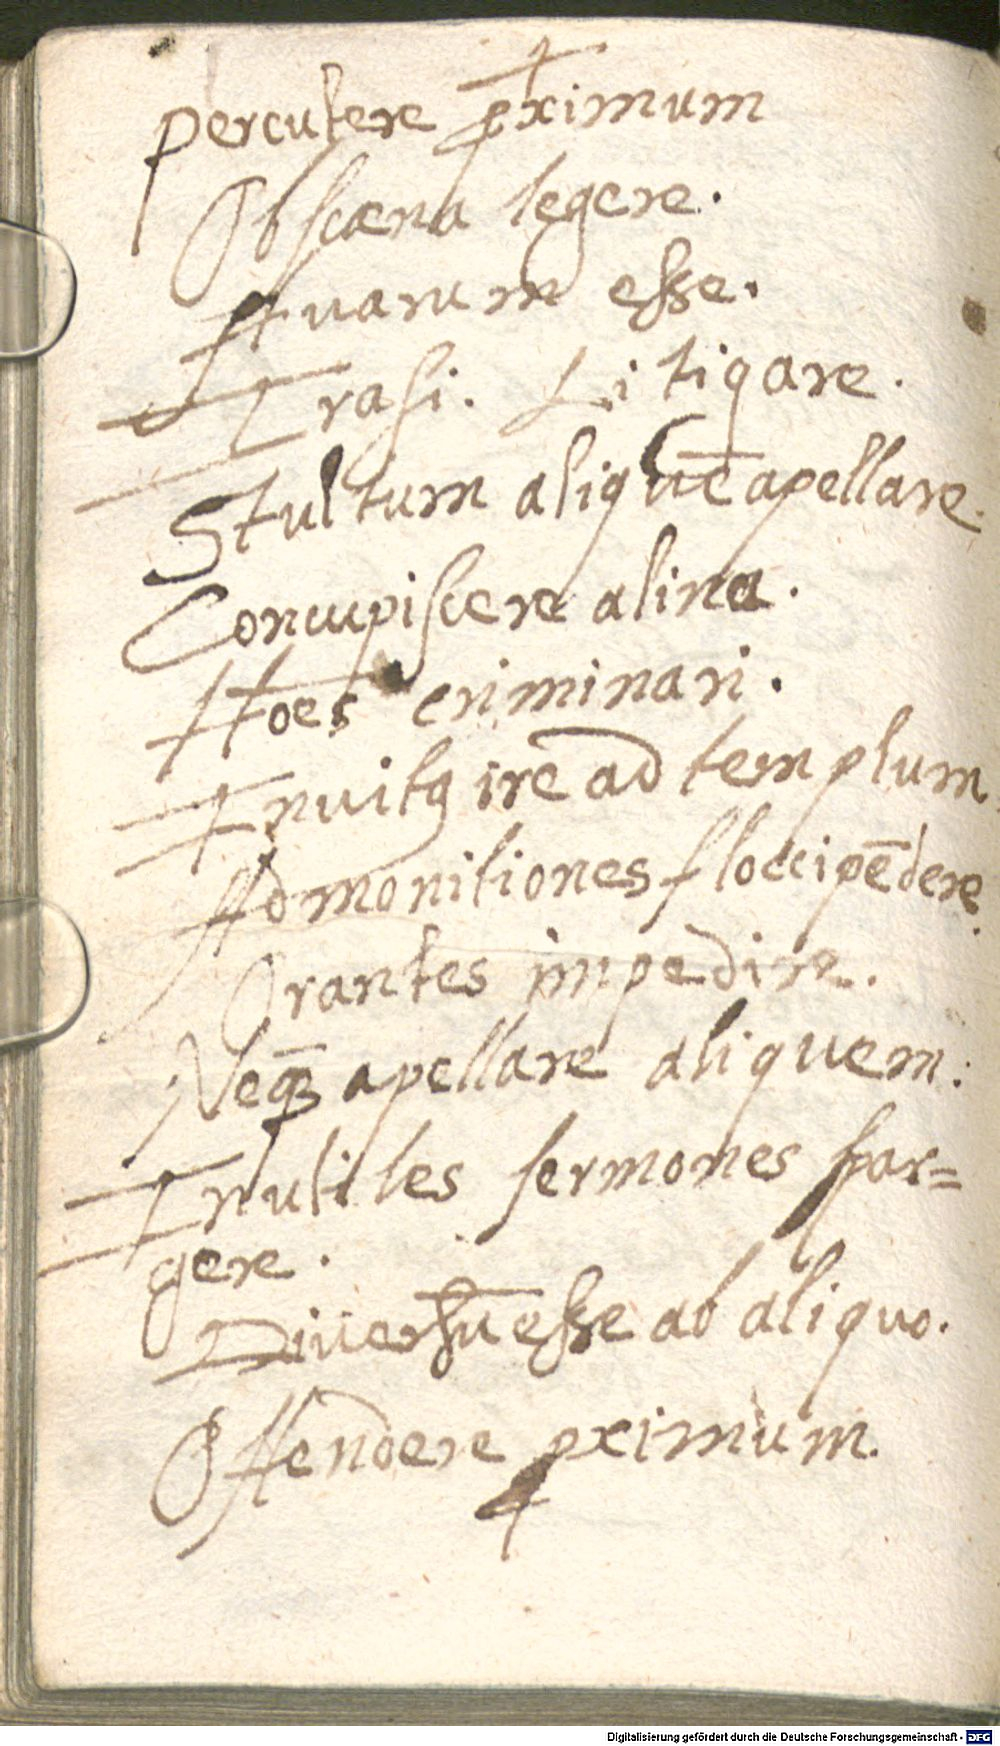 Percutere ꝓximum
Obscæna legere.
Auarum esse.
Irasi. Litigare.
Stultum aliquē apellare.
Concupiscere alina.
Hōes criminari.
Inuitꝰ ire ad templum
Admonitiones floccipēdere.
Orantes impedire.
apellare aliquem.
Inutiles sermones spar=
gere.
Diuersū esse ab aliquo.
Offendere ꝓximum.
Digitalisierung gefördert durch die Deutsche Forschungsgemeinschaft - DFG